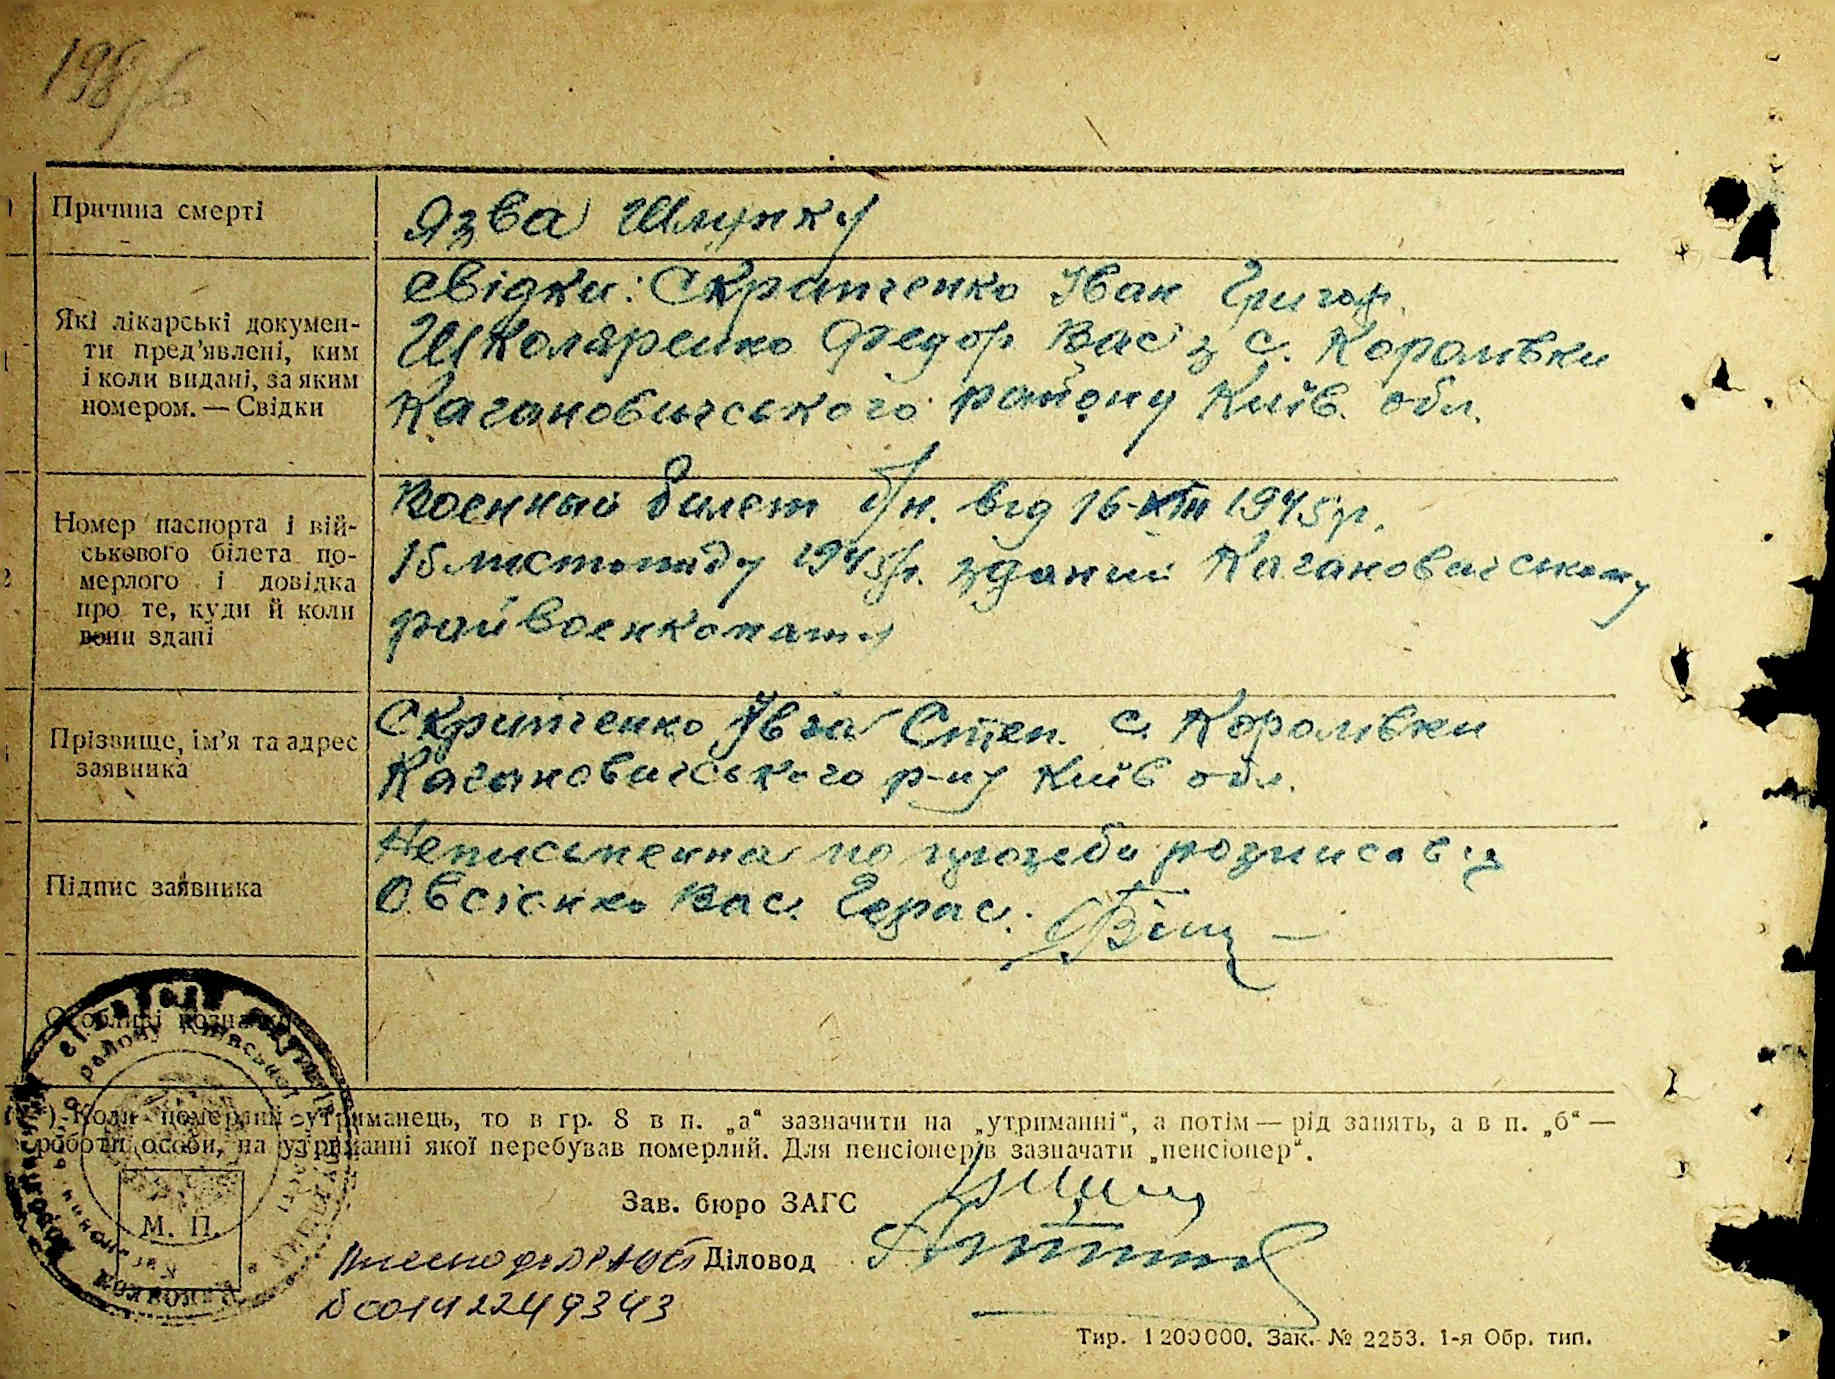 198
Причина смерті
Язва Шлунку
Які лікарські докумен-
ти пред'явлені, ким
і коли видані, за яким
номером. — Свідки
Свідки: Скрипченко Іван Григор.
Школяренко Федор Вас з с. Королівки
Кагановичського району Київ. обл.
Номер паспорта і вій-
ськового білета по-
мерлого і довідка
про те, куди й коли
вони здані
Военный билет б/н. від 16 1945 р.
15 листопаду 1945 р. зданий Кагановичському
райвоенкомату
Прізвище, ім'я та адрес
заявника
Скрипченко Степ. с. Королівки
Кагановичського р-ну Київ обл.
Підпис заявника
Неписьменна по прозьбі розписавсь
Овсієнко Вас. Герас.
Особливі познач
*) Коли померлий утриманець, то в гр. 8 в п. „а“ зазначити на „утриманні“, а потім — рід занять, а в п. „б“ —
роботи особи, на утриманні якої перебував померлий. Для пенсіонерів зазначати „пенсіонер“.
Зав. бюро ЗАГС
М. П.
Діловод
00142249343
Тир. 1200000. Зак. № 2253. 1-я Обр. тип.